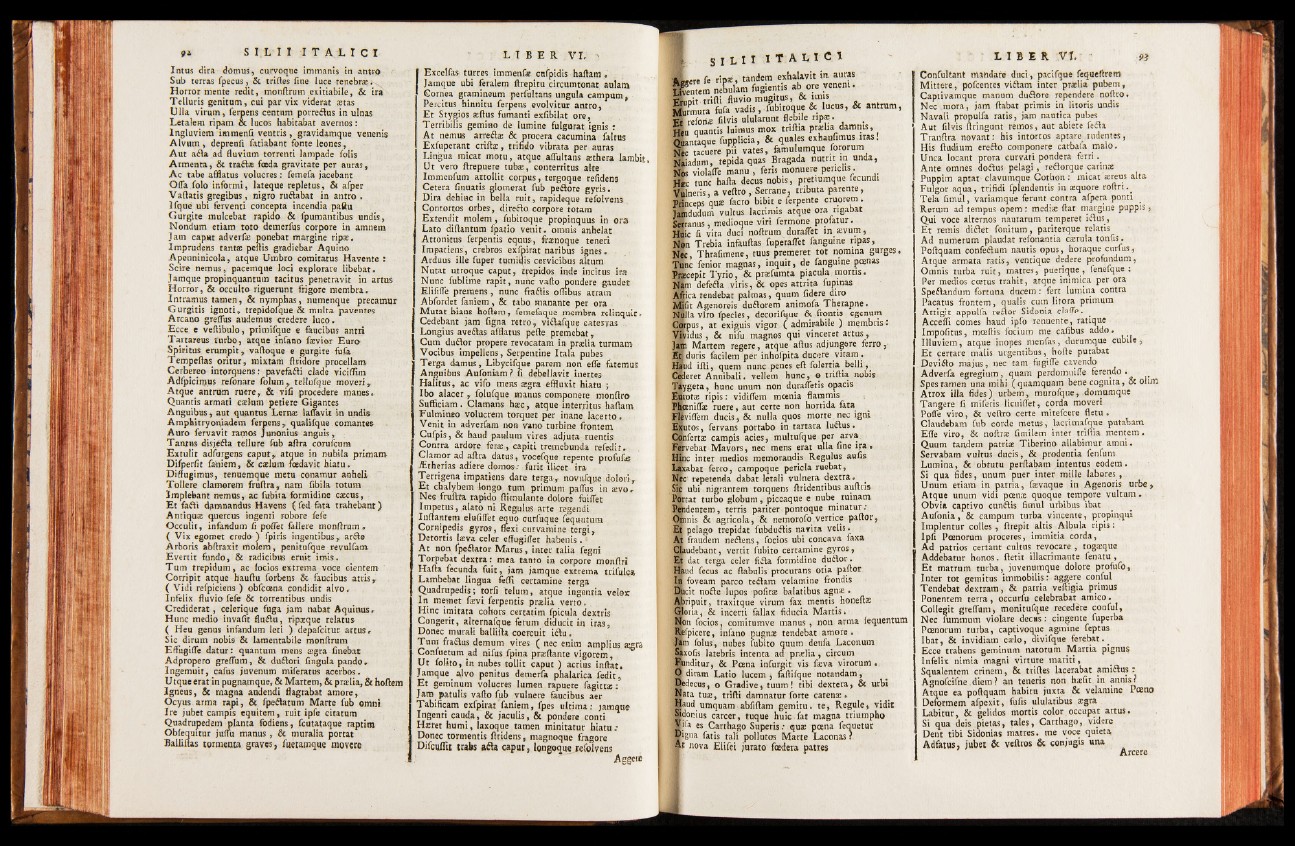 92 SILII ITALICI
Intus dira domus, curvoque immanis in antro
Sub terras ſpecus, & triſtes ſine luce tenebræ.
Horror mente redit, monſtrum exitiabile, & ira
Telluris genitum, cui par vix viderat ætas
Ulla virum, ſerpens centum porrectus in ulnas
Letalem ripam & lucos habitabat avernos:
Ingluviem immenſi ventris, gravidamque venenis
Alvum, deprenſi ſatiabant fonte leones,
Aut acta ad fluvium torrenti lampade ſolis
Armenta, & tractæ fœda gravitate per auras,
Ac tabe afflatus volucres: ſemeſa jacebant
Oſſa ſolo informi, lateque repletus, & aſper
Vaſtatis gregibus, nigro ructabat in antro.
Iſque ubi ferventi concepta incendia paſtu
Gurgite mulcebat rapido & ſpumantibus undis,
Nondum etiam toto demerſus corpore in amnem
Jam caput adverſæ ponebat margine ripæ.
Imprudens tantæ peſtis gradiebar Aquino
Apenninicola, atque Umbro comitatus Havente:
Scire nemus, pacemque loci explorare libebat.
Jamque propinquantum tacitus penetravit in artus
Horror, & occulto riguerunt frigore membra.
Intramus tamen, & nymphas, numenque precamur
Gurgitis ignoti, trepidoſque & multa paventes
Arcano greſſus audemus credere luco.
Ecce e veſtibulo, primiſque e faucibus antri
Tartareus turbo, atque inſano ſævior Euro
Spiritus erumpit, vaſtoque e gurgite fuſa
Tempeſtas oritur, mixtam ſtridore procellam
Cerbereo intorquens: pavefacti clade viciſſim
Adſpicimus reſonare ſolum, telluſque moveri,
Atque antrum ruere, & viſi procedere manes.
Quantis armati cælum petiere Gigantes
Anguibus, aut quantus Lernæ laſſavit in undis
Amphitryoniadem ſerpens, qualiſque comantes
Auro ſervavit ramos Junonius anguis,
Tantus disjecta tellure ſub aſtra coruſcum
Extulit adſurgens caput, atque in nubila primam
Diſperſit ſaniem, & cælum fœdavit hiatu.
Diffugimus, tenuemque metu conamur anheli
Tollere clamorem fruſtra, nam ſibila totum
Implebant nemus, ac ſubita formidine cæcus,
Et facti damnandus Havens (ſed fata trahebant)
Antiquæ quercus ingenti robore ſeſe
Occulit, infandum ſi poſſet fallere monſtrum.
(Vix egomet credo) ſpiris ingentibus, arcto
Arboris abſtraxit molem, penituſque revulſam
Evertit fundo, & radicibus eruit imis.
Tum trepidum, ac ſocios extrema voce cientem
Corripit atque hauſtu ſorbens & faucibus atris,
(Vidi reſpiciens) obſcœna condidit alvo.
Infelix fluvio ſeſe & torrentibus undis
Crediderat, celerique fuga jam nabat Aquinus.
Hunc medio invaſit fluctu, ripæque relatus
(Heu genus infandum leti) depaſcitur artus.
Sic dirum nobis & lamentabile monſtrum
Effugiſſe datur: quantum mens ægra ſinebat
Adpropero greſſum, & ductori ſingula pando.
Ingemuit, caſus juvenum miſeratus acerbos.
Utque erat in pugnamque, & Martem, & prælia, & hoſtem
Igneus, & magna audendi flagrabat amore,
Ocyus arma rapi, & ſpectatum Marte ſub omni
Ire jubet campis equitem, ruit ipſe citatum
Quadrupedem planta fodiens, ſcutataque raptim
Obſequitur juſſu manus, & muralia portat
Balliſtas tormenta graves, ſuetamque movere
LIBER VI.
Excelſas turres immenſæ cuſpidis haſtam.
Jamque ubi feralem ſtrepitu circumtonat aulam
Cornea gramineum perſultans ungula campum,
Percitus hinnitu ſerpens evolvitur antro,
Et Stygios æſtus fumanti exſibilat ore,
Terribilis gemino de lumine fulgurat ignis:
At nemus arrectæ & procera cacumina ſaltus
Exſuperant criſtæ, trifido vibrata per auras
Lingua micat motu, atque aſſultans æthera lambit,
Ut vero ſtrepuere tubæ, conterritus alte
Immenſum attollit corpus, tergoque reſidens
Cetera ſinuatis glomerat ſub pectore gyris.
Dira dehinc in bella ruit, rapideque reſolvens
Contortos orbes, directo corpore totam
Extendit molem, ſubitoque propinquus in ora
Lato diſtantum ſpatio venit. omnis anhelat
Attonitus ſerpentis equus, frænoque teneri
Impatiens, crebros exſpirat naribus ignes.
Arduus ille ſuper tumidis cervicibus altum
Nutat utroque caput, trepidos inde incitus iræ
Nunc ſublime rapit, nunc vaſto pondere gaudet
Elififſe premens, nunc fractis oſſibus atram
Abſordet ſaniem, & tabo manante per ora
Mutat hians hoſtem, ſemeſaque membra relinquit.
Cedebant jam ſigna retro, victaſque catervas
Longius avectas afflatus peſte premebat,
Cum ductor propere revocatam in prælia turmam
Vocibus impellens, Serpentine Itala pubes
Terga damus, Libyciſque parem non eſſe fatemus
Anguibus Auſoniam? ſi debellavit inertes
Halitus, ac viſo mens ægra effluxit hiatu;
Ibo alacer, ſoluſque manus componere monſtro
Sufficiam. Clamans hæc, atque interritus haſtam
Fulmineo volucrem torquet per inane lacerto.
Venit in adverſam non vano turbine frontem
Cuſpis, & haud paulum vires adjuta ruentis
Contra ardore feræ, capiti tremebunda reſedit.
Clamor ad aſtra datus, voceſque repente profuſæ
Ætherias adiere domos: furit ilicet ira
Terrigena impatiens dare terga, novuſque dolori,
Et chalybem longo tum primum paſſus in ævo.
Nec fruſtra rapido ſtimulante dolore fuiſſet
Impetus, alato ni Regulus arte regendi
Inſtantem eluſiſſet equo curſuque ſequutum
Cornipedis gyros, flexi curvamine tergi,
Detortis læva celer effugiſſet habenis.
At non ſpectator Marus, inter talia ſegni
Torpebat dextra: mea tanto in corpore monſtri
Haſta ſecunda fuit, jam jamque extrema triſulca
Lambebat lingua feſſi certamine terga
Quadrupedis; torſi telum, atque ingentia velox
In memet ſævi ſerpentis prælia verto.
Hinc imitata cohors certatim ſpicula dextris
Congerit, alternaſque ferum diducit in iras,
Donec murali balliſta coercuit ictu.
Tum fractus demum vires (nec enim amplius ægra
Conſuetum ad niſus ſpina præſtante vigorem,
Ut ſolito, in nubes tollit caput) acrius inſtat.
Jamque alvo penitus demerſa phalarica ſedit,
Et geminum volucres lumen rapuere ſagittæ:
Jam patulis vaſto ſub vulnere faucibus aer
Tabificam exſpirat ſaniem, ſpes ultima: jamque
Ingenti cauda, & jaculis, & pondere conti
Hæret humi, laxoque tamen minitatur hiatu:
Donec tormentis ſtridens, magnoque fragore
Diſcuſſit trabs acta caput, longoque reſolvens
Aggere
SILII ITALICI
Aggere ſe ripæ, tandem exhalavit in auras
Liventem nebulam fugientis ab ore veneni.
Erupit triſti fluvio mugitus, & imis
Murmura fuſa vadis, ſubitoque & lucus, & antrum,
Et reſonæ ſilvis ulularunt flebile ripæ.
Heu quantis luimus mox triſtia prælia damnis,
Quantaque ſupplicia, & quales exhauſimus iras!
Nec tacuere pii vates, famulumque ſororum
Naiadum, tepida quas Bragada nutrit in unda,
Nos violaſſe manu, ſeris monuere periclis.
Hæc tunc haſta decus nobis, pretiumque ſecundi
Vulneris, a veſtro, Serrane, tributa parente,
Princeps quæ ſacro bibit e ſerpente cruorem.
Jamdudum vultus lacrimis atque ora rigabat
Serranus, medioque viri ſermone profatur.
Huic ſi vita duci noſtrum duraſſet in ævum,
Non Trebia infauſtas ſuperaſſet ſanguine ripas,
Nec, Thraſimene, tuus premeret tot nomina gurges.
Tunc ſenior magnas, inquit, de ſanguine pœnas
Præcepit Tyrio, & præſumta piacula mortis.
Nam defecta viris, & opes attrita ſupinas
Africa tendebat palmas, quum ſidere diro
Miſit Agenoreis ductorem animoſa Therapne.
Nulla viro ſpecies, decoriſque & frontis egenum
Corpus, at exiguis vigor (admirabile) membris:
Vividus, & niſu magnos qui vinceret artus,
Jam Martem regere, atque aſtus adjungere ferro,
Et duris facilem per inhoſpita ducere vitam.
Haud iſti, quem nunc penes eſt ſolertia belli,
Cederet Annibali. vellem hunc, o triſtia nobis
Taygeta, hunc unum non duraſſetis opacis
Eurotæ ripis: vidiſſem mœnia flammis
Phœniſſæ ruere, aut certe non horrida fata
Fleviſſem ducis, & nulla quos morte nec igni
Exutos, ſervans portabo in tartara luctus.
Confertæ campis acies, multuſque per arva
Fervebat Mavors, nec mens erat ulla ſine ira.
Hinc inter medios memorandis Regulus auſis
Laxabat ferro, campoque pericla ruebat,
Nec repetenda dabat letali vulnera dextra.
Sic ubi nigrantem torquens ſtridentibus auſtris
Portat turbo globum, piceaque e nube ruinam
Pendentem, terris pariter pontoque minatur:
Omnis & agricola, & nemoroſo vertice paſtor,
Et pelago trepidat ſubductis navita velis.
At fraudem nectens, ſocios ubi concava ſaxa
Claudebant, vertit ſubito certamine gyros,
Et dat terga celer ficta formidine ductor.
Haud ſecus ac ſtabulis procurans otia paſtor
In foveam parco tectam velamine frondis
Ducit nocte lupos poſitæ balatibus agnæ.
Abripuit, traxitque virum fax mentis honeſtæ
Gloria, & incerti fallax fiducia Martis.
Non ſocios, comitumve manus, non arma ſequentum
Reſpicere, inſano pugnæ tendebat amore.
Jam ſolus, nubes ſubito quum denſa Laconum
Saxoſis latebris intenta ad prælia, circum
Funditur, & Pœna inſurgit vis ſæva virorum.
O diram Latio lucem, faſtiſque notandam,
Dedecus, o Gradive, tuum! tibi dextera, & urbi
Nata tuæ, triſti damnatur ſorte catenæ.
Haud umquam abſiſtam gemitu. te, Regule, vidit
Sidonius carcer, tuque huic ſat magna triumpho
Viſa es Carthago Superis: quæ pœna ſequetur
Digna ſatis tali pollutos Marte Laconas?
At nova Eliſei jurato fœdera patres
LIBER VI. 93
Conſultant mandare duci, paciſque ſequeſtrem
Mittere, poſcentes victam inter prælia pubem,
Captivamque manum ductore rependere noſtro.
Nec mora, jam ſtabat primis in litoris undis
Navali propulſa ratis, jam nautica pubes
Aut ſilvis ſtringunt remos, aut abiete ſecta
Tranſtra novant: his intortos aptare rudentes,
His ſtudium erecto componere carbaſa malo.
Unca locant prora curvati pondera ferri.
Ante omnes doctus pelagi, rectorque carinæ
Puppim aptat clavumque Cothon: micat æreus alta
Fulgor aqua, trifidi ſplendentis in æquore roſtri.
Tela ſimul, variamque ferunt contra aſpera ponti
Rerum ad tempus opem: mediæ ſtat margine puppis,
Qui voce alternos nautarum temperet ictus,
Et remis dictet ſonitum, pariterque relatis
Ad numerum plaudat reſonantia cærula tonſis.
Poſtquam confectum nautis opus, horaque curſus,
Atque armata ratis, ventique dedere profundum,
Omnis turba ruit, matres, puerique, ſeneſque:
Per medios cœtus trahit, atque inimica per ora
Spectandum fortuna ducem: fert lumina contra
Pacatus frontem, qualis cum litora primum
Attigit appulſa rector Sidonia claſſe.
Acceſſi comes haud ipſo renuente, ratique
Impoſitus, mœſtis ſocium me caſibus addo.
Illuviem, atque inopes menſas, durumque cubile,
Et certare malis urgentibus, hoſte putabat
Devicto majus, nec tam fugiſſe cavendo
Adverſa egregium, quam perdomuiſſe ferendo.
Spes tamen una mihi (quamquam bene cognita, & olim
Atrox illa fides) urbem, muroſque, domumque
Tangere ſi miſeris licuiſſet, corda moveri
Poſſe viro, & veſtro certe miteſcere fletu.
Claudebam ſub corde metus, lacrimaſque putabam
Eſſe viro, & noſtræ ſimilem inter triſtia mentem.
Quum tandem patriæ Tiberino allabimur amni.
Servabam vultus ducis, & prodentia ſenſum
Lumina, & obtutu perſtabam intentus eodem.
Si qua fides, unum puer inter mille labores,
Unum etiam in patria, ſævaque in Agenoris urbe,
Atque unum vidi pœnæ quoque tempore vultum.
Obvia captivo cunctis ſimul urbibus ibat
Auſonia, & campum turba vincente, propinqui
Implentur colles, ſtrepit altis Albula ripis:
Ipſi Pœnorum proceres, immitia corda,
Ad patrios certant cultus revocare, togæque
Addebatur honos. ſtetit illacrimante ſenatu,
Et matrum turba, juvenumque dolore profuſo,
Inter tot gemitus immobilis: aggere conſul
Tendebat dextram, & patria veſtigia primus
Ponentem terra, occurſu celebrabat amico.
Collegit greſſum, monituſque recedere conſul,
Nec ſummum violare decus: cingente ſuperba
Pœnorum turba, captivoque agmine ſeptus
Ibat, & invidiam cælo, diviſque ferebat.
Ecce trahens geminum natorum Martia pignus
Infelix nimia magni virtute mariti,
Squalentem crinem, & triſtes lacerabat amictus:
Agnoſciſne diem? an teneris non hæſit in annis?
Atque ea poſtquam habitu juxta & velamine Pœno
Deformem aſpexit, fuſis ululatibus ægra
Labitur, & gelidos mortis color occupat artus.
Si qua deis pietas, tales, Carthago, videre
Dent tibi Sidonias matres. me voce quieta
Adfatus, jubet & veſtros & conjugis una
Arcere